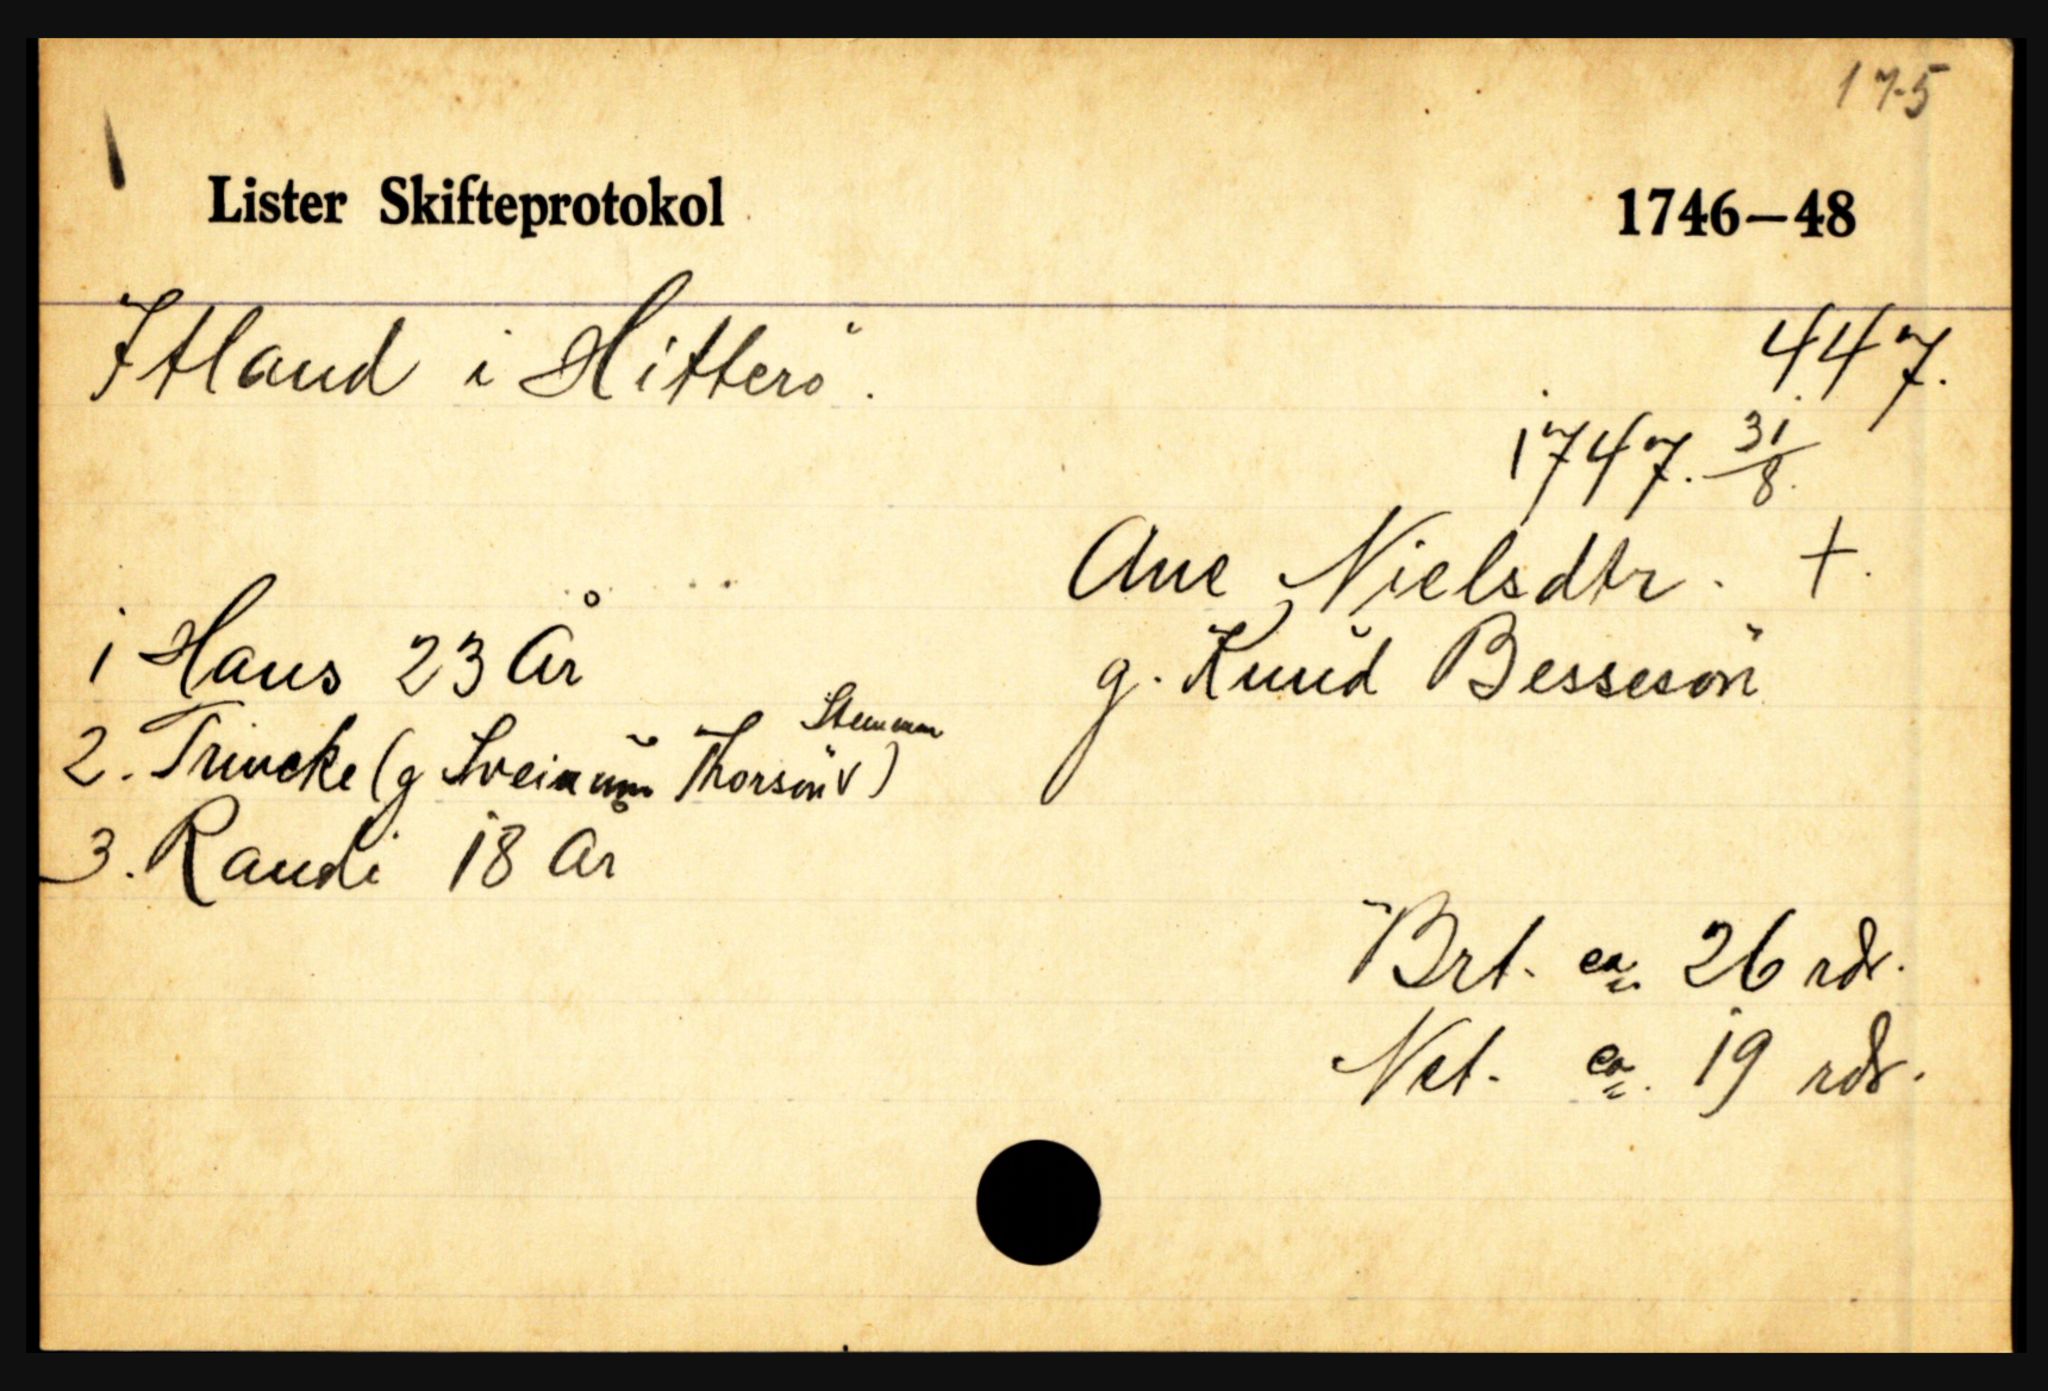 175
Lister Skifteprotokol 1746–48
Itland i Hitterö.
447.
1747. 31/8.
Ane Nielsdtr. +.
g. Knud Bessesön
1 Hans 23 År
2. Trincke (g Sveinung Thorsön v)
3. Randi 18 År
Brt. ca. 26 rdr.
Net. ca. 19 rdr.